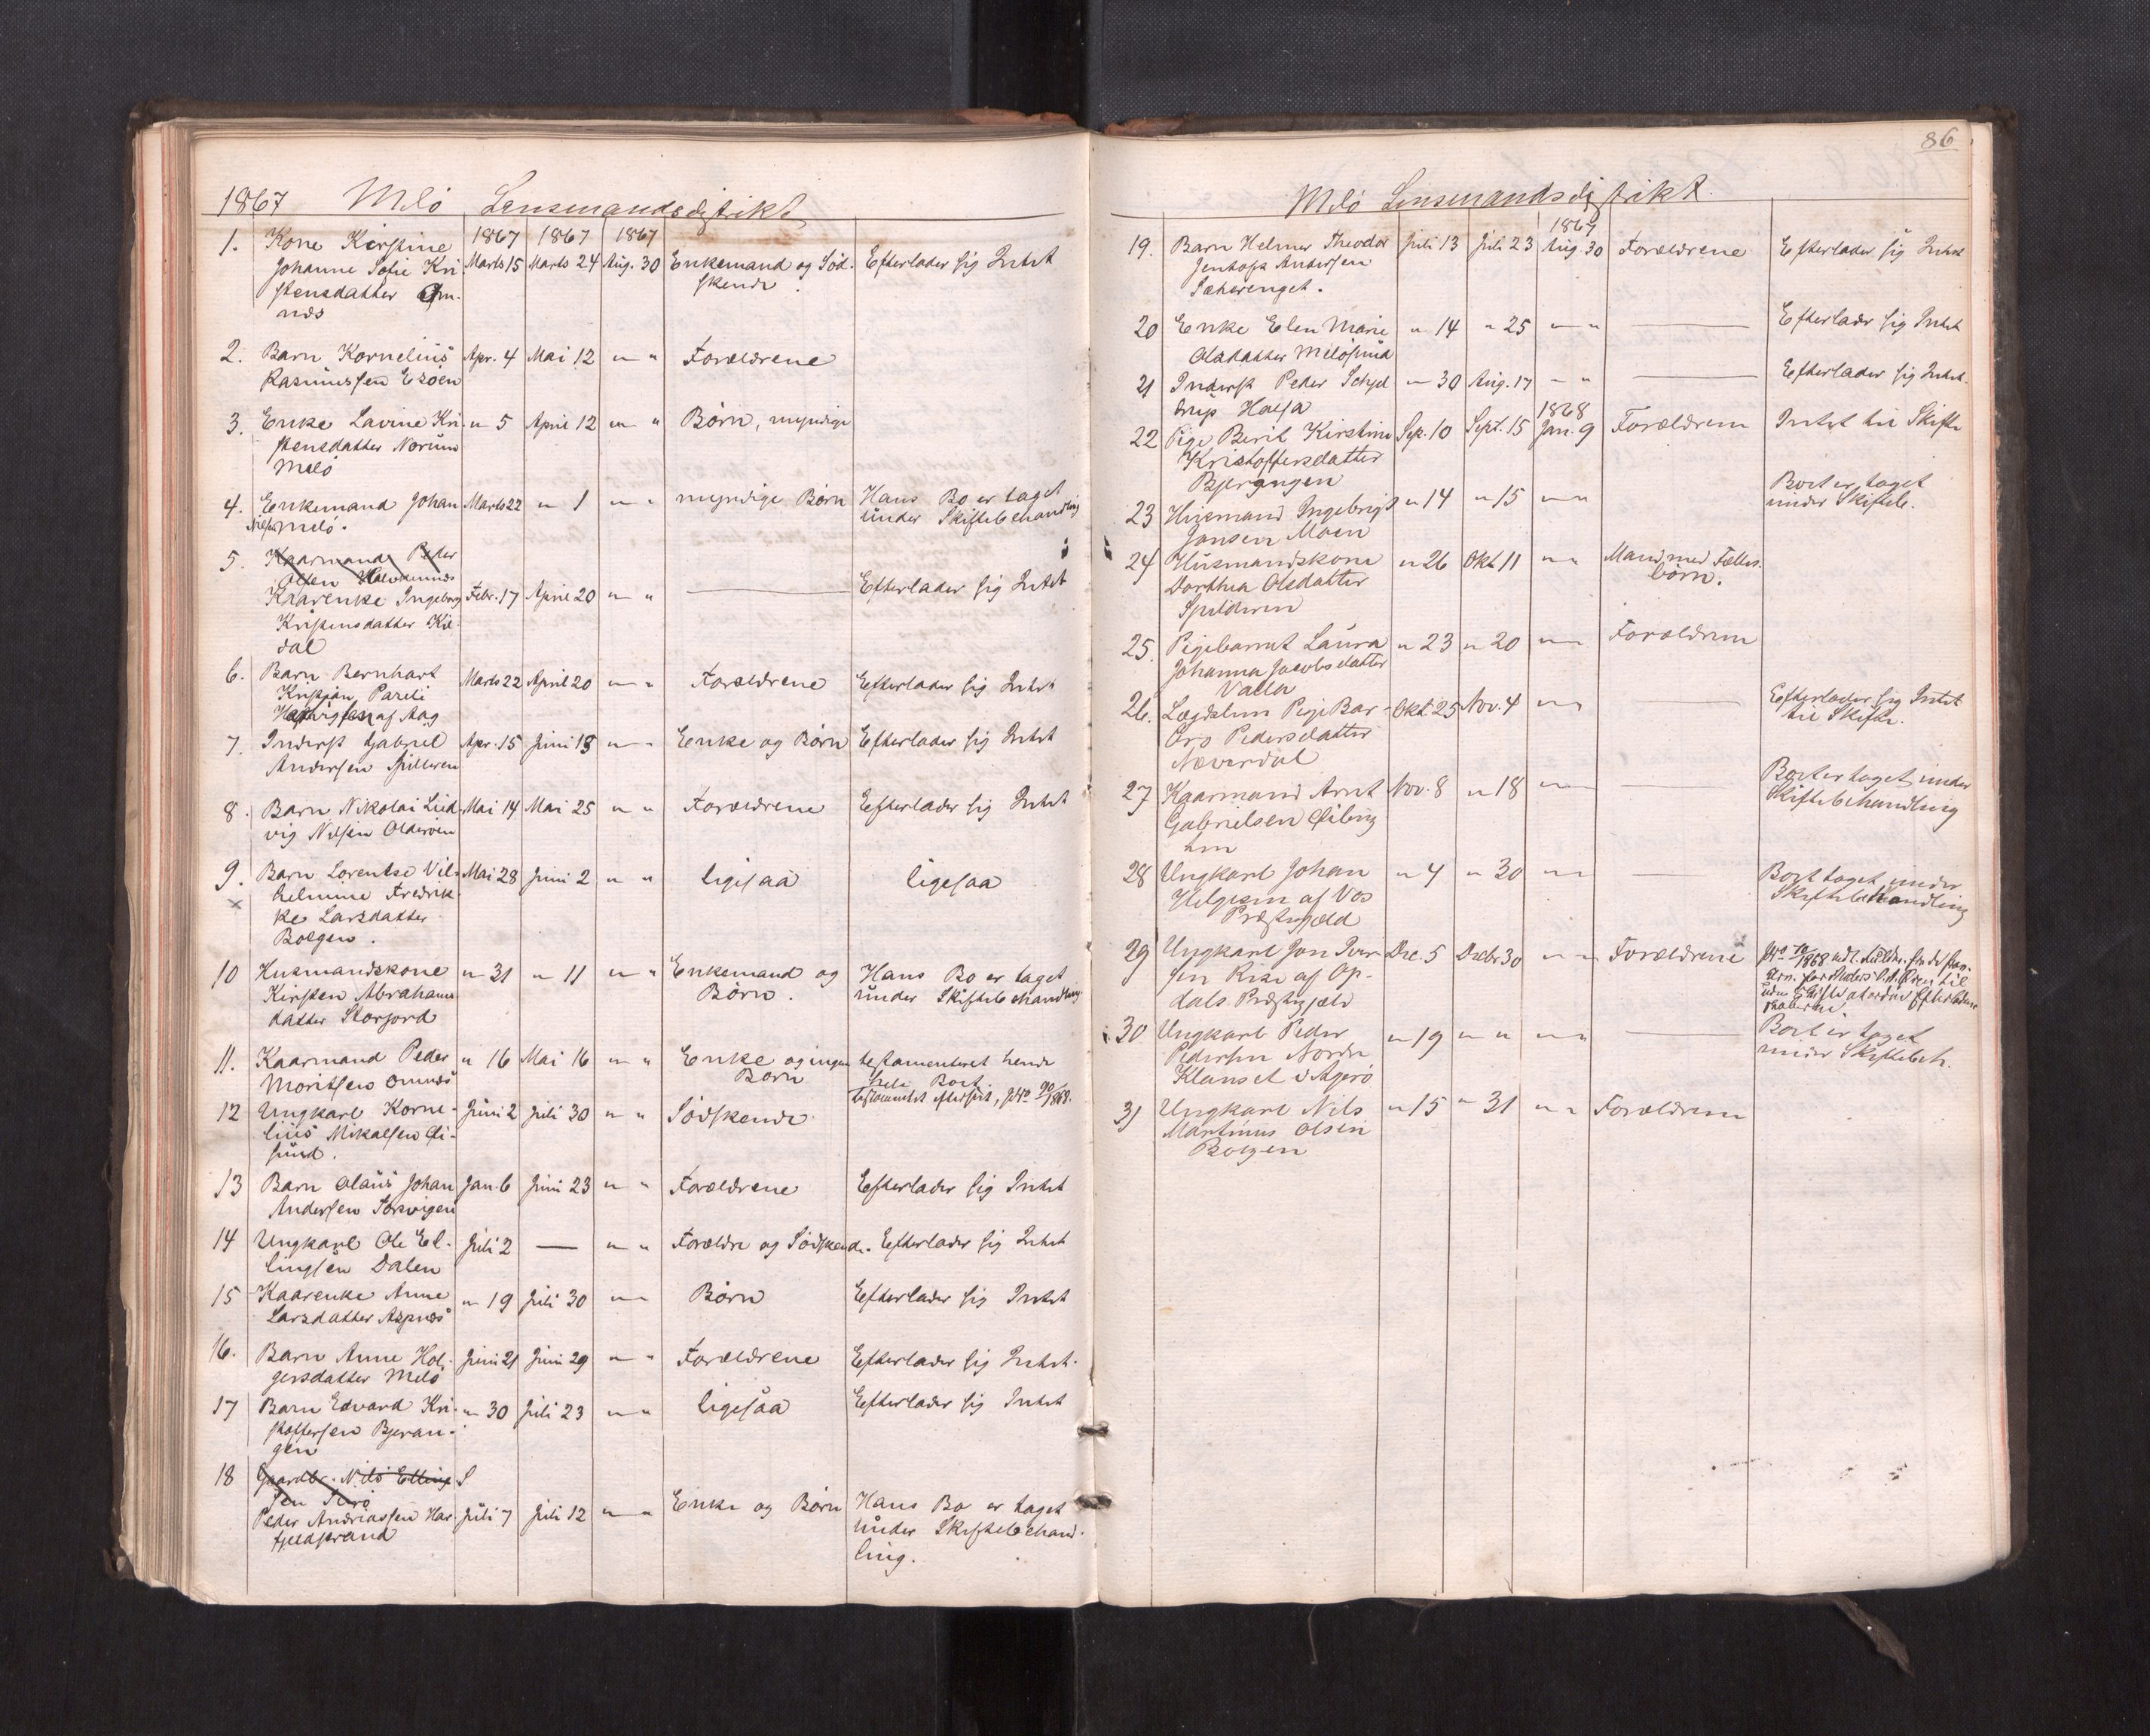 1867 Melø Lensmandsdistrikt
1867 1867 1867
1. Kone Kirstine Marts 15 Marts 24 Aug. 30 Enkemand og Sød- Efterlader sig Intet
Johanne Sofie Kri skende.
stensdatter
næs
2. Barn Kornelius Apr. 4 Mai 12 " " Forældrene
Rasmussen Esøen
3. Enke Lavine Kri " 5 April 12 " " Børn, myndige
stensdatter Norum
Melø
4. Enkemand Johan Marts 22 " 1 " " myndige Børn Hans Bo er taget
Melø. under Skiftebehandling
5. Kaarmand Peder
Olsen
Kaarenke Ingeborg Febr. 17 April 20 " " — Efterlader sig Intet
Kristensdatter Kil
dal
6. Barn Bernhart Marts 22 April 20 " " Forældrene Efterlader sig Intet
Kristian Pareli
af Aag
7. Inderst Gabriel Apr. 15 Juni 18 " " Enke og Børn Efterlader sig Intet
Andersen Spilderen
8. Barn Nikolai Lud Mai 14 Mai 25 " " Forældrene Efterlader sig Intet
vig Nilsen Oldervien
9. Barn Lorentse Vil- Mai 28 Juni 2 " " ligesaa ligesaa
x helmine Fredrik
ke Larsdatter
Bolgen.
10 Husmandskone " 31 " 11 " " Enkemand og Hans Bo er taget
Kirsten Abrahams Børn. under Skiftebehandling
datter Storjord
11. Kaarmand Peder " 16 Mai 16 " " Enke og ingen testamenteret hende
Moritsen Omnæs Børn hele Boet.
12 Ungkarl Korne- Juni 2 Juli 30 " " Sødskende
lius Mikalsen
sund.
13 Barn Olaus Johan Jan. 6 Juni 23 " " Forældrene Efterlader sig Intet
Andersen Torsvigen
14 Ungkarl Ole El- Juli 2 — " " Forældre og Sødskende. Efterlader sig Intet
lingsen Dalen
15 Kaarenke Anne " 19 Juli 30 " " Børn Efterlader sig Intet
Larsdatter Aspnæs
16. Barn Anne Hol- Juni 21 Juni 29 " " Forældrene Efterlader sig Intet.
gersdatter Melø
17 Barn Edvard Kri- " 30 Juli 23 " " ligesaa Efterlader sig Intet
stoffersen Bjeran-
gen
18 Gaardbr. Nils Elling
sen
Peder Andreassen Har Juli 7 Juli 12 " " Enke og Børn Hans Bo er taget
fjeldstrand under Skiftebehand-
ling.
86
Melø Lensmandsdistrikt.
1867
19. Barn Helmer Theodor Juli 13 Juli 23 Aug. 30 Forældrene Efterlader sig Intet
Jentoft Andersen
20 Enke Elen Marie " 14 " 25 " " — Efterlader sig Intet
Olsdatter Meløsund
21 Inderst Peder Schjel " 30 Aug. 17 " " — Efterlader sig Intet.
drup Halsa
1868
22 Pige Berit Kirstine Sep. 10 Sept. 15 Jan. 9 Forældrene Intet til Skifte
Kristoffersdatter
Bjerangen
23 Husmand Ingebrigt " 14 " 15 " " Boet er taget
Jonsen Moen under Skifteb.
24 Husmandskone " 26 Okt 11 " " Mand med Fælles-
Dorthea Olsdatter børn.
Spilderen
25. Pigebarnet Laura " 23 " 20 " " Forældrene
Johanna Jacobsdatter
Valla
26. Lægdslem Pige Bar- Okt. 25 Nov. 4 " " — Efterlader sig Intet
bro Pedersdatter til Skifte.
Neverdal
27 Kaarmand Arnt Nov. 8 " 18 " " — Boet er taget under
Gabrielsen Skiftebehandling
28 Ungkarl Johan " 4 " 30 " " — Boet taget under
Helgesen af Vos Skiftebehandling
Præstegjæld
29 Ungkarl Jon Iver- Dec. 5 Decbr 30 " " Forældrene
sen Rise af Op-
dals Præstegjæld
30 Ungkarl Peder " 19 " " " " — Boet er taget
Pedersen Nordre under Skiftebeh.
Klauset i Agerø
31 Ungkarl Nils " 15 " 31 " " Forældrene
Martinus Olsen
Bolgen